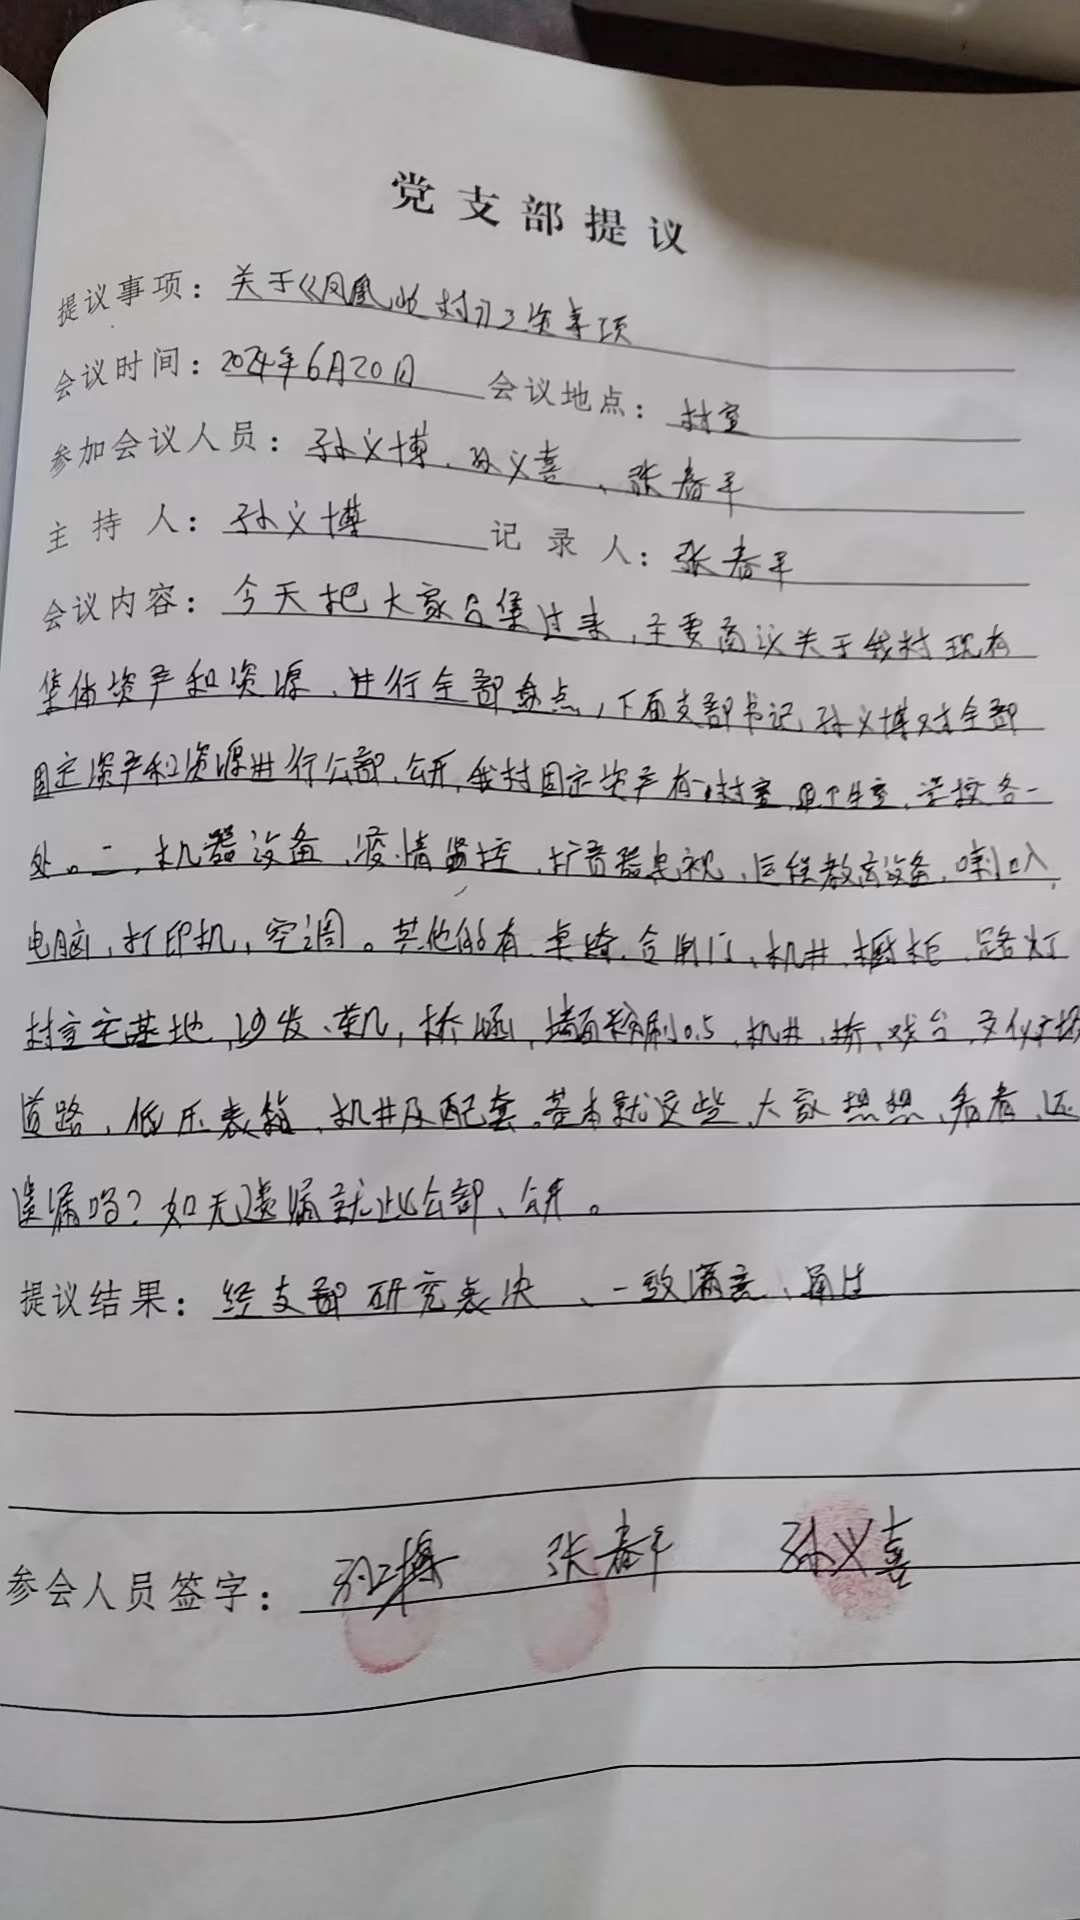 党支部提议
提议事项：关于《凤凰山村》三资事项
会议时间：2024年6月20日 会议地点：村室
参加会议人员：孙义博、孙义喜、张春平
主持人：孙义博 记录人：张春平
会议内容：今天把大家合集过来，主要商议关于我村现有
集体资产和资源、进行全部盘点，下面支部书记孙义博对全部
固定资产和资源进行公部、公开，我村固定资产有一，村室，卫生室，学校各一
处。二，机器设备、疫情监控，扩音器电视，远程教育设备，喇叭
电脑，打印机，空调。其他的有，桌椅，合闸门，机井，橱柜，路灯
村室宅基地，沙发、茶几，桥涵，墙面粉刷0.5，机井，桥，戏台，文化广场
道路，低压表箱，机井及配套。基本就这些，大家想想，看看，还
遗漏吗？如无遗漏就此公部、公开。
提议结果：经支部研究表决、一致满意、通过
参会人员签字：孙义博 张春平 孙义喜